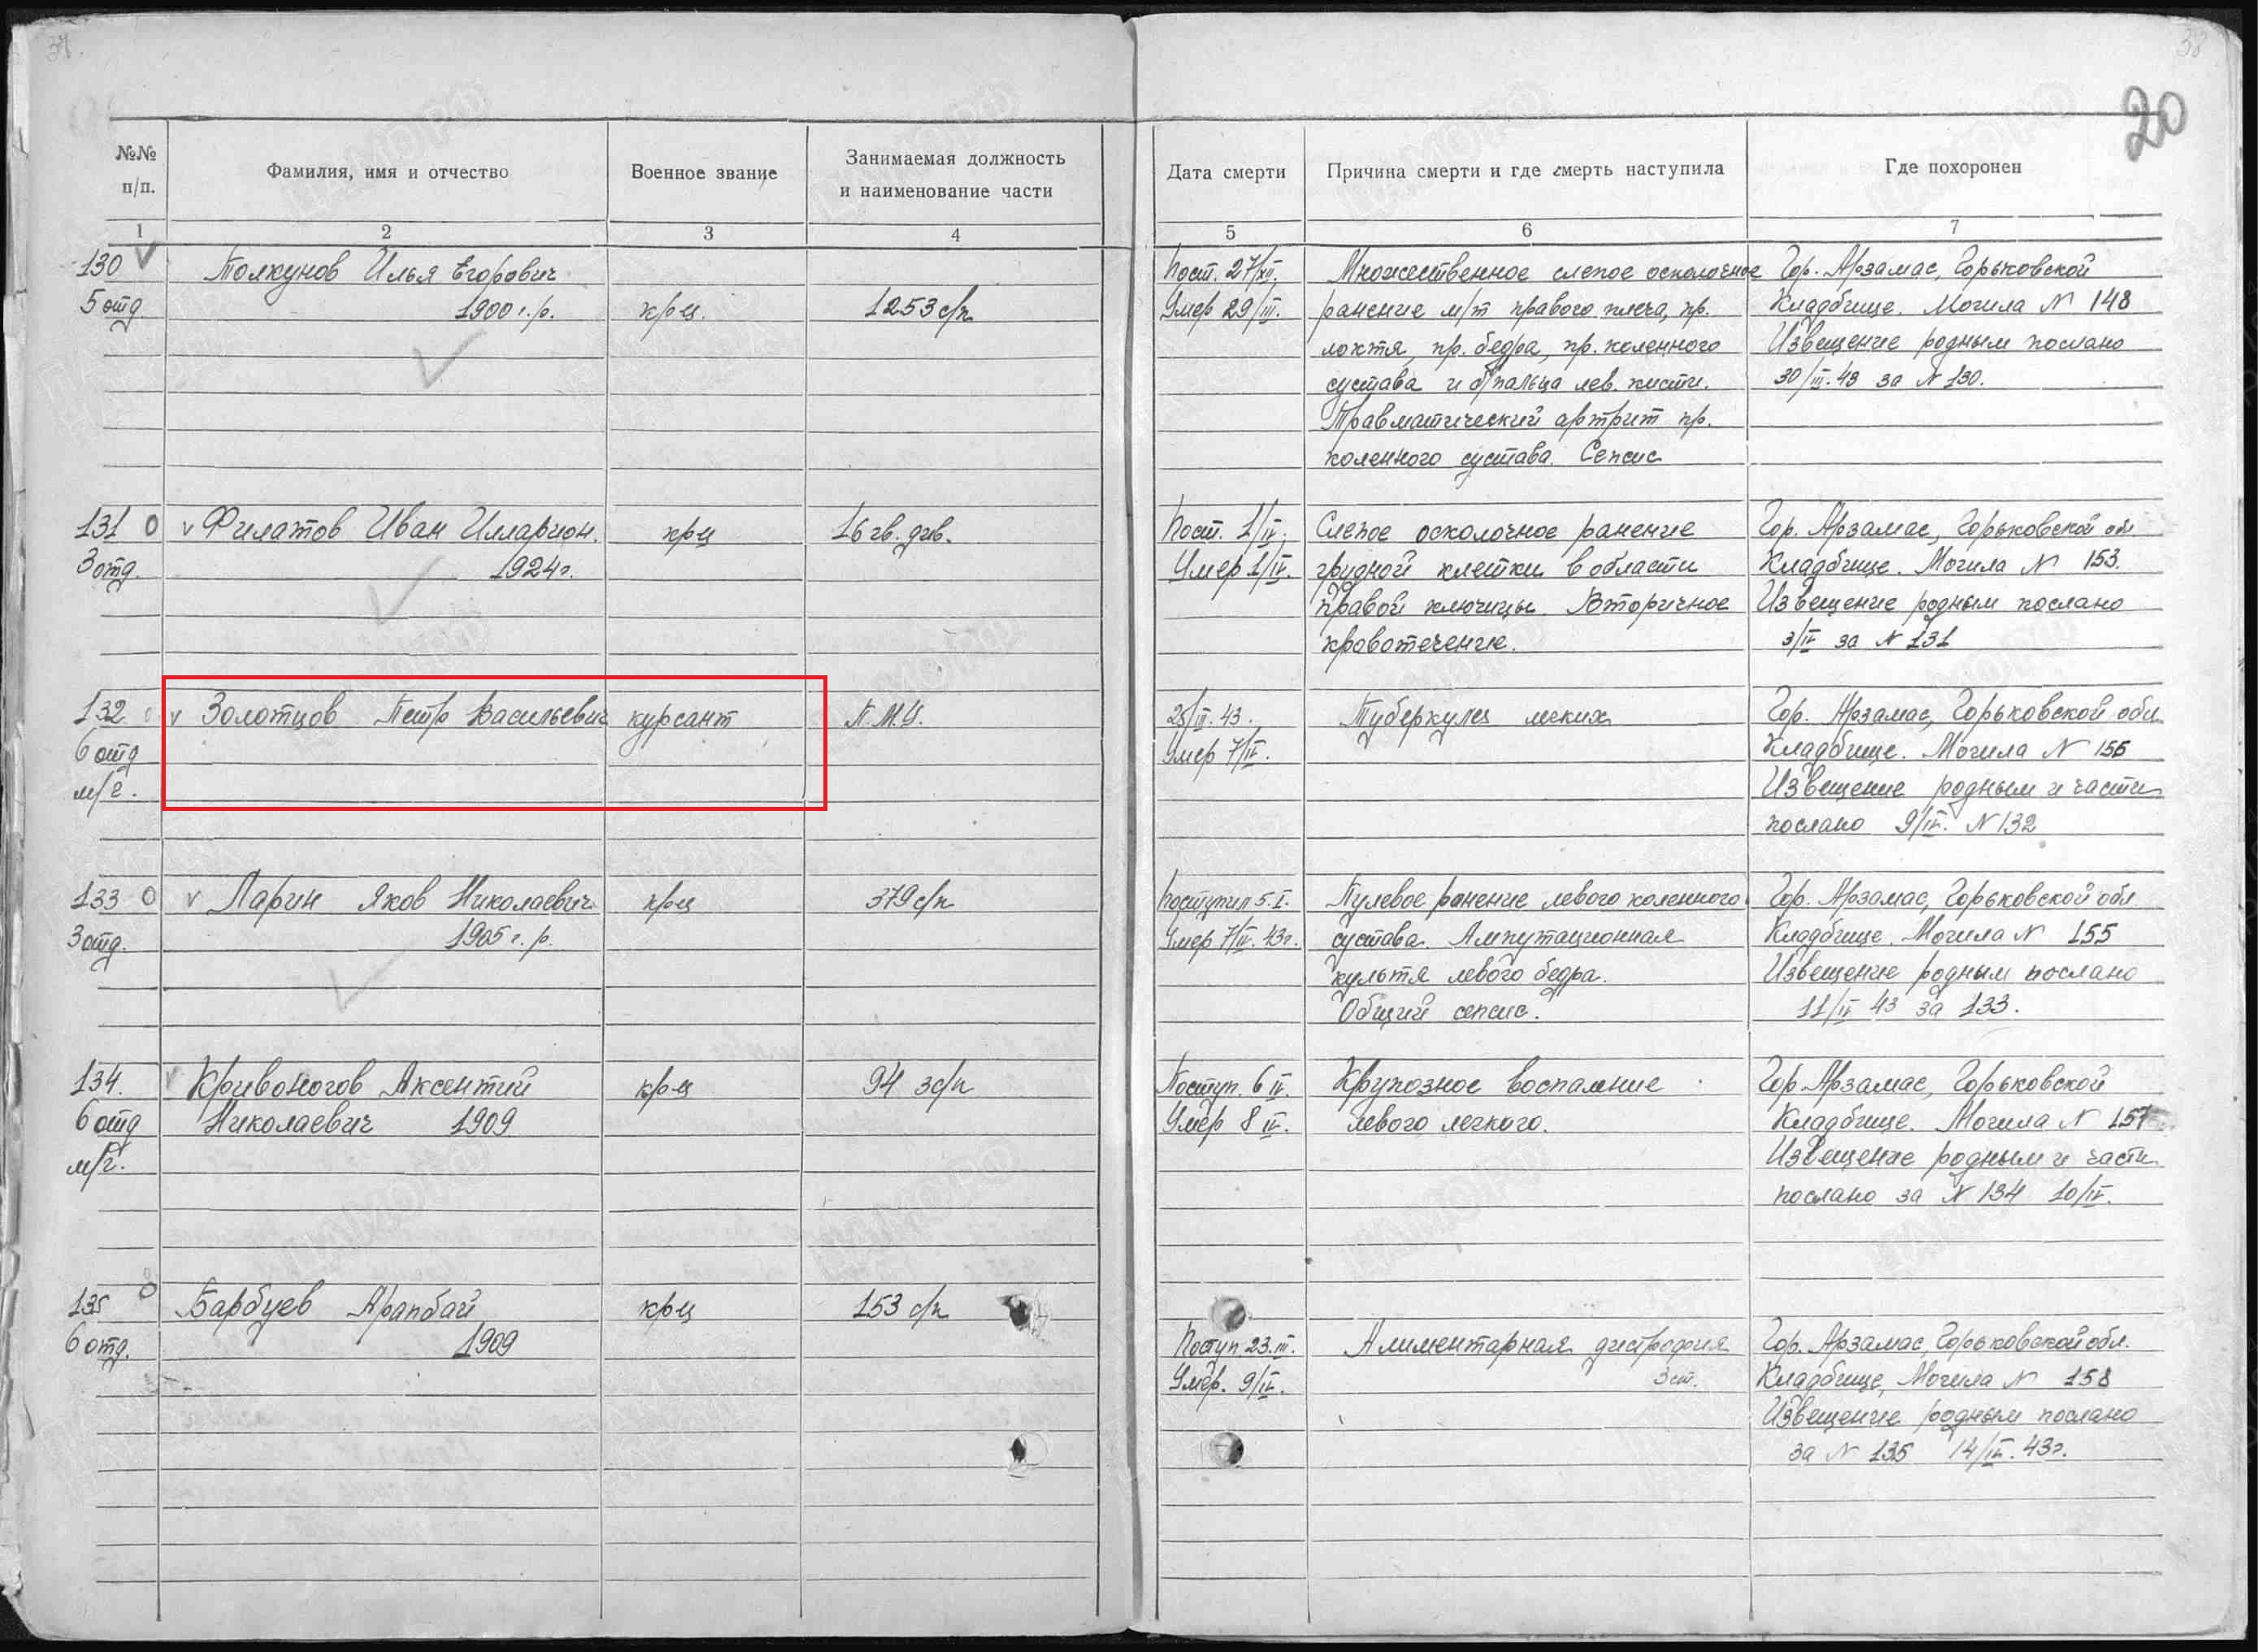 37.
38
20
№№ п/п.
Фамилия, имя и отчество
Военное звание
Занимаемая должность и наименование части
Дата смерти
Причина смерти и где смерть наступила
Где похоронен
1
2
3
4
5
6
7
130 Толкунов Илья Егорович Пост. 27/III. Множественное слепое осколочное Гор. Арзамас, Горьковской
5 отд. 1900 г.р. кр-ц. 1253 с/п Умер 29/III. ранение м/т правого плеча, пр. Кладбище. Могила N 148
локтя, пр. бедра, пр. коленного Извещение родным послано
сустава и пальца лев. кисти. 30/III.43 за N 130.
Травматический артрит пр.
коленного сустава. Сепсис
131 Филатов Иван Илларион. кр-ц 16 гв. див. Пост. 1/IV. Слепое осколочное ранение Гор. Арзамас, Горьковской обл.
3 отд. 1924 г. Умер 1/IV. грудной клетки в области Кладбище. Могила N 153.
правой ключицы. Вторичное Извещение родным послано
кровотечение. 3/IV за N 131
132 Золотцов Петр Васильевич курсант 25/III.43. Туберкулез легких Гор. Арзамас, Горьковской обл.
6 отд Умер 7/IV. Кладбище. Могила N 156
м/г. Извещение родным и части
послано 9/IV. N 132
133 Ларин Яков Николаевич кр-ц 379 с/п Поступил 5.I. Пулевое ранение левого коленного Гор. Арзамас, Горьковской обл
3 отд. 1905 г.р. Умер 7/IV.43г. сустава. Ампутационная Кладбище. Могила N 155
культя левого бедра. Извещение родным послано
Общий сепсис. 11/IV 43 за 133.
134. Кривоногов Аксентий кр-ц 94 зсп Поступ. 6 IV. Крупозное воспаление Гор. Арзамас, Горьковской
6 отд Николаевич 1909 Умер 8 IV. левого легкого. Кладбище. Могила N 157
м/г. Извещение родным и части
послано за N 134 10/IV.
135 Барбуев Арапбай кр-ц 153 с/п
6 отд. 1909 Поступ 23.III. Алиментарная дистрофия Гор. Арзамас, Горьковской обл.
Умер. 9/IV. 3 ст. Кладбище, Могила N 158
Извещение родным послано
за N 135 14/IV.43г.